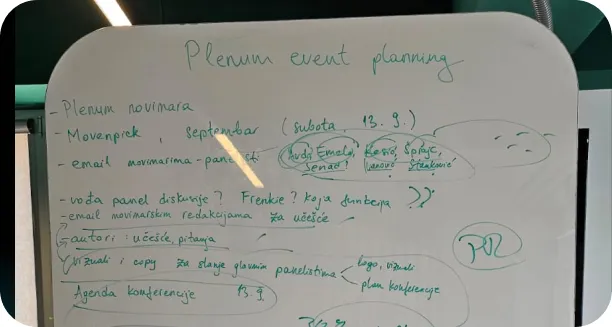 Plenum event planning
- Plenum novinara
- Movenpick, septembar (subota, 13. 9.)
- email novinarima - panelisti
Avdić Emela,
Senad!
- vođa panel diskusije? Frenkie? koja funkcija ??
- email novinarskim redakcijama za učešće
- autori: učešće, pitanja
vizuali i copy za slanje glavnim panelistima
logo, vizuali
plan konferencije
Agenda konferencije 13. 9.